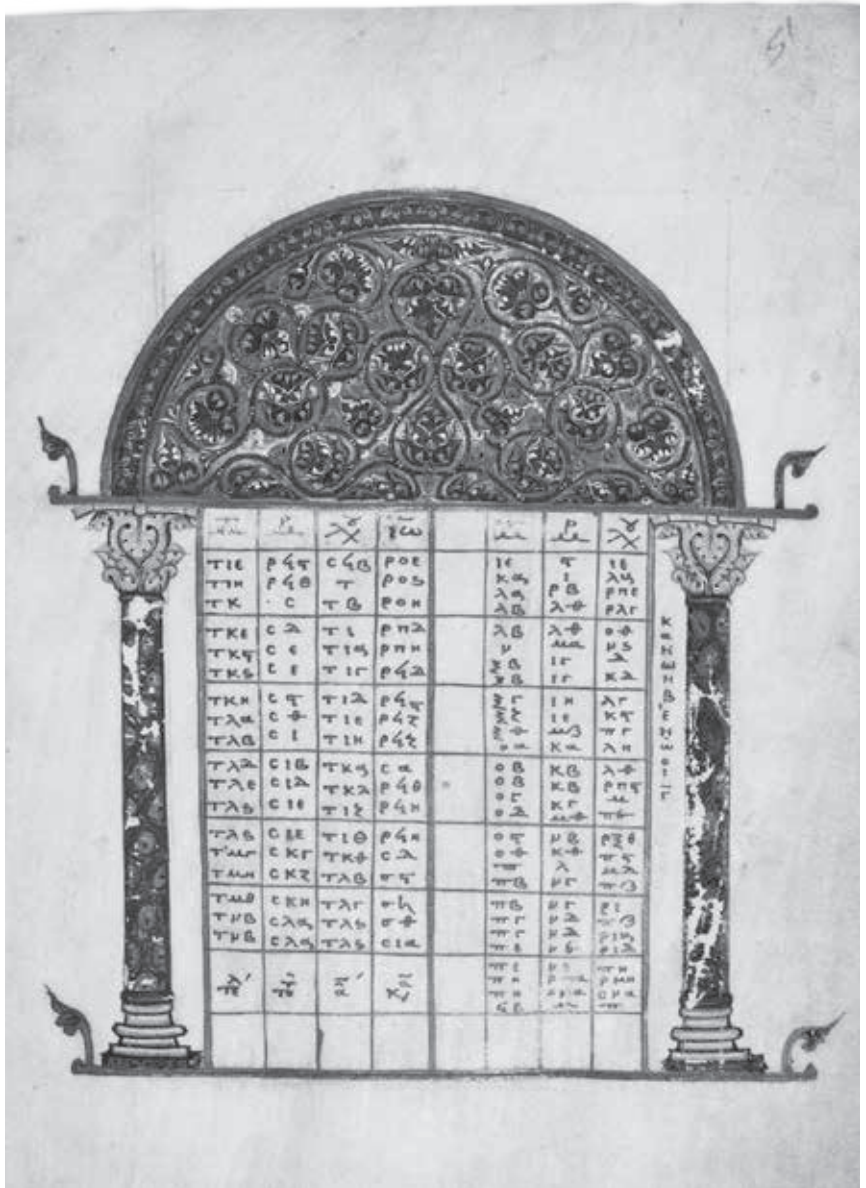 μρ λκ ιω μρ λκ
τιε ρϟϛ σϟβ ροε ιε ϛ ιε
τιη ρϟθ τ ροϛ κα ι λα
τκ σ τβ ροη λα ρβ ρπε
λβ λθ ρλγ
τκε σδ τι ρπδ λβ λθ οθ
τκϛ σε τια ρπη ν μα νϛ
τκϛ σε τιγ ρϟδ ξβ ιγ δ
ξβ ιγ κδ
τκη σϛ τιδ ρϟϛ ξγ ιη λγ
τλα σθ τιε ρϟζ ξζ ιε κϛ
τλβ σι τιη ρϟζ ξθ μζ πγ
οα κα λη
τλδ σιβ τκα σα οβ κβ λθ
τλε σιδ τκδ ρϟθ οβ κβ ρπϛ
τλϛ σιε τιζ ρϟη ογ κγ μ
οδ μθ
τλϛ σιε τιθ ρϟη οϛ νβ ρξθ
τμγ σκγ τκθ σδ οθ κθ πϛ
τμη σκζ τλβ σϛ π λ μδ
πβ νγ πζ
τμθ σκη τλγ ση πβ νγ ρι
τνβ σλα τλϛ σθ πγ νδ πζ
τνβ σλα τλϛ σια πγ νδ ρια
πε νε ριδ
πε νε πη
πη ρμα ρμη
πη ρμα σνα
ϟβ μ π
κανων β εν ω οι γ